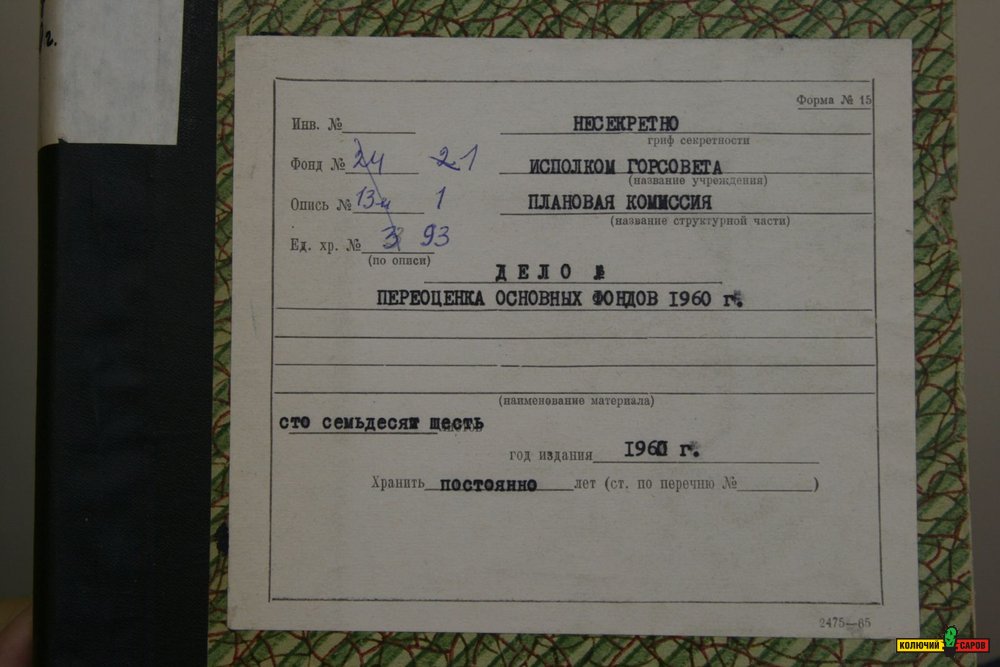 г.
Форма № 15
Инв. № НЕСЕКРЕТНО
гриф секретности
Фонд № 24 21 ИСПОЛКОМ ГОРСОВЕТА
(название учреждения)
Опись № 13-и 1 ПЛАНОВАЯ КОМИССИЯ
(название структурной части)
Ед. хр. № 3 93
(по описи)
ДЕЛО №
ПЕРЕОЦЕНКА ОСНОВНЫХ ФОНДОВ 1960 г.
(наименование материала)
сто семьдесят шесть
год издания 1960 г.
Хранить постоянно лет (ст. по перечню № )
2475—65
КОЛЮЧИЙ САРОВ